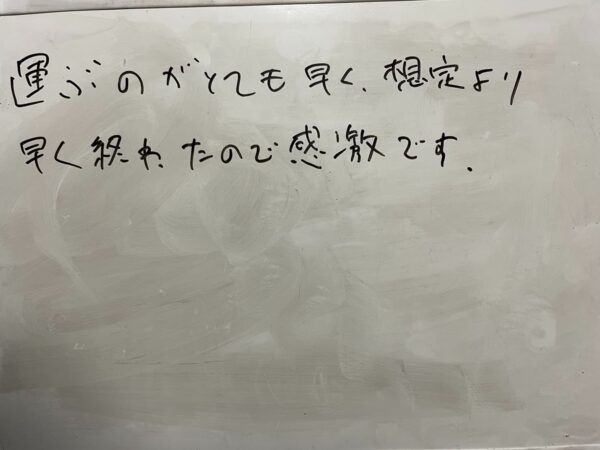 運ぶのがとても早く、想定より
早く終わったので感激です。